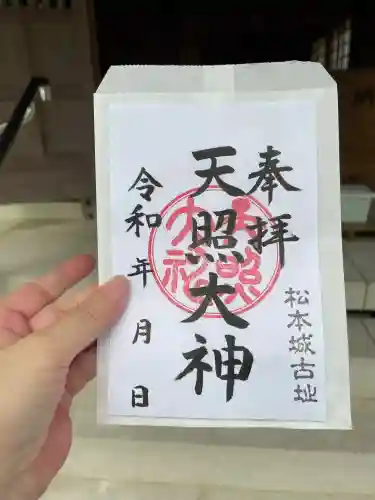 奉拝
松本城古址
天照大神
令和年月日